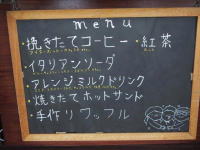 menu
・挽きたてコーヒー・紅茶
・イタリアンソーダ
・アレンジミルクドリンク
・焼きたてホットサンド
・手作りワッフル